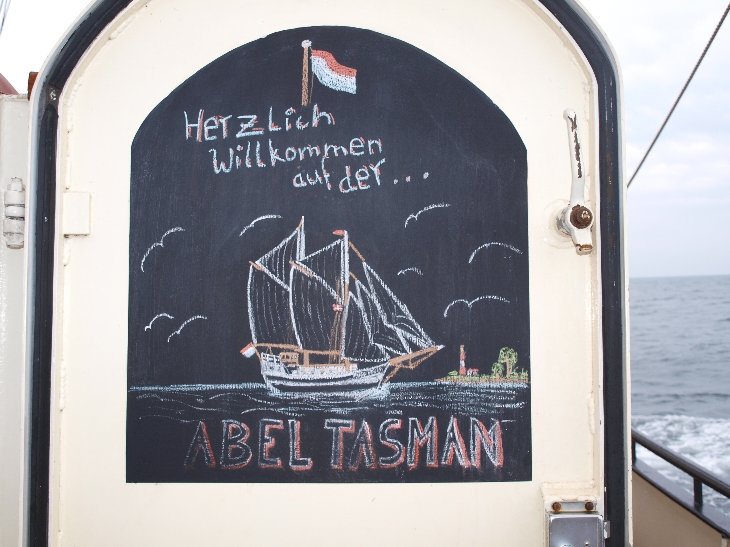 Herzlich
Willkommen
auf der...
ABEL TASMAN